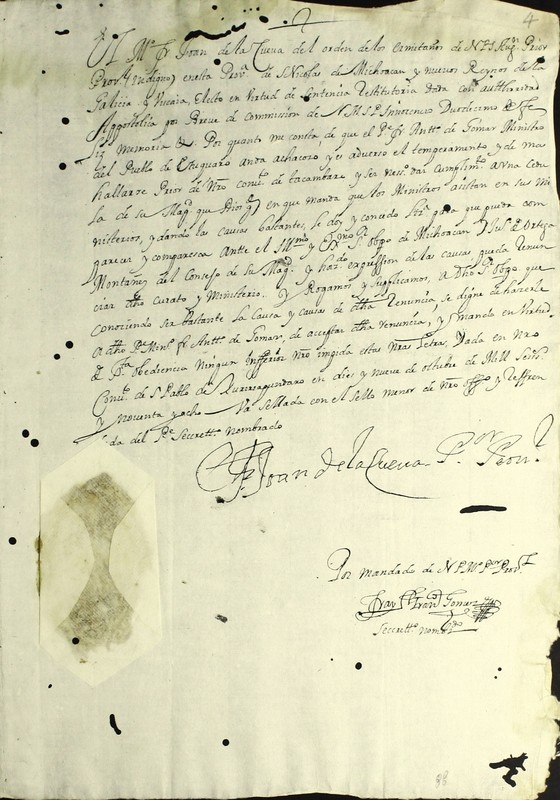 4
El M.º fr. Joan de la Cueva del orden de los ermitaños de N. P. S. Aug.n Prior
Prov.l indigno en esta Prov.a de S. Nicolas de Michoacan y nuevos Reynos de la
Galicia y Vizcaia, Electo en virtud de sentencia Restitutoria dada con authoridad
Appostolica por Breve de Commission de N. M. S. P. Innocencio Duodecimo de fe
liz memoria &. Por quanto me consta de que el P.e fr. Antt.o de Somar Ministro
del Pueblo de Etuquaro anda achacoso, y es adverso el temperamento, y de mas
hallarse Prior de Nro conv.to de tacambaro y ser ness.o dar cumplim.to a una cedu
la de su Mag.d que Dios g.e en que manda que los Ministros asistan en sus mi
nisterios, y dando las causas bastantes, le doy y concedo lic.a para que pueda com
parecer y comparesca Ante el Ill.mo y R.mo S.r obpo de Michoacan D. Ju.o de Ortega
Montañez del Consejo de su Mag.d y haz.do expression de las causas pueda renun
ciar dho curato y Ministerio. Y Rogamos y suplicamos, a dho S.r obpo. que
conociendo ser bastante la causa y causas de dtha renuncia, se digne de hacerle
a dtho P. Min.o fr. Antt.o de Somar, de acceptar dtha renuncia, y mando en virtud
de S.ta obediencia Ningun Infferior Nro impida estas Nras letras. Dada en Nro
Conv.to de S. Pablo de Yurirapundaro en dies y nueve de octubre de Mill seisc.os
y noventa y ocho. Va sellada con el sello menor de nro officio y Reffren
dada del P.e Secrett.o nombrado
Fr. Joan de la Cueva P.or Prov.l
Por mandado de N. P. M.o P.or Prov.l
Fray Fran.co Gomez
Secrett.o nombr.do
98